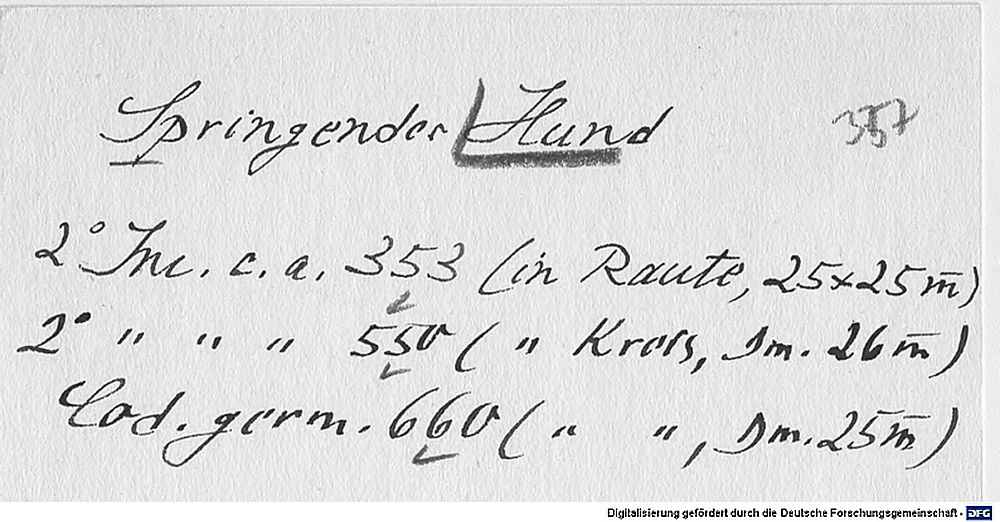 Springender Hund 357
2° Inc. c. a. 353 (in Raute, 25x25 m̅)
2° " " " 550 ( " Kreis, Dm. 26 m̅)
Cod. germ. 660 ( " " , Dm. 25 m̅)
Digitalisierung gefördert durch die Deutsche Forschungsgemeinschaft - DFG